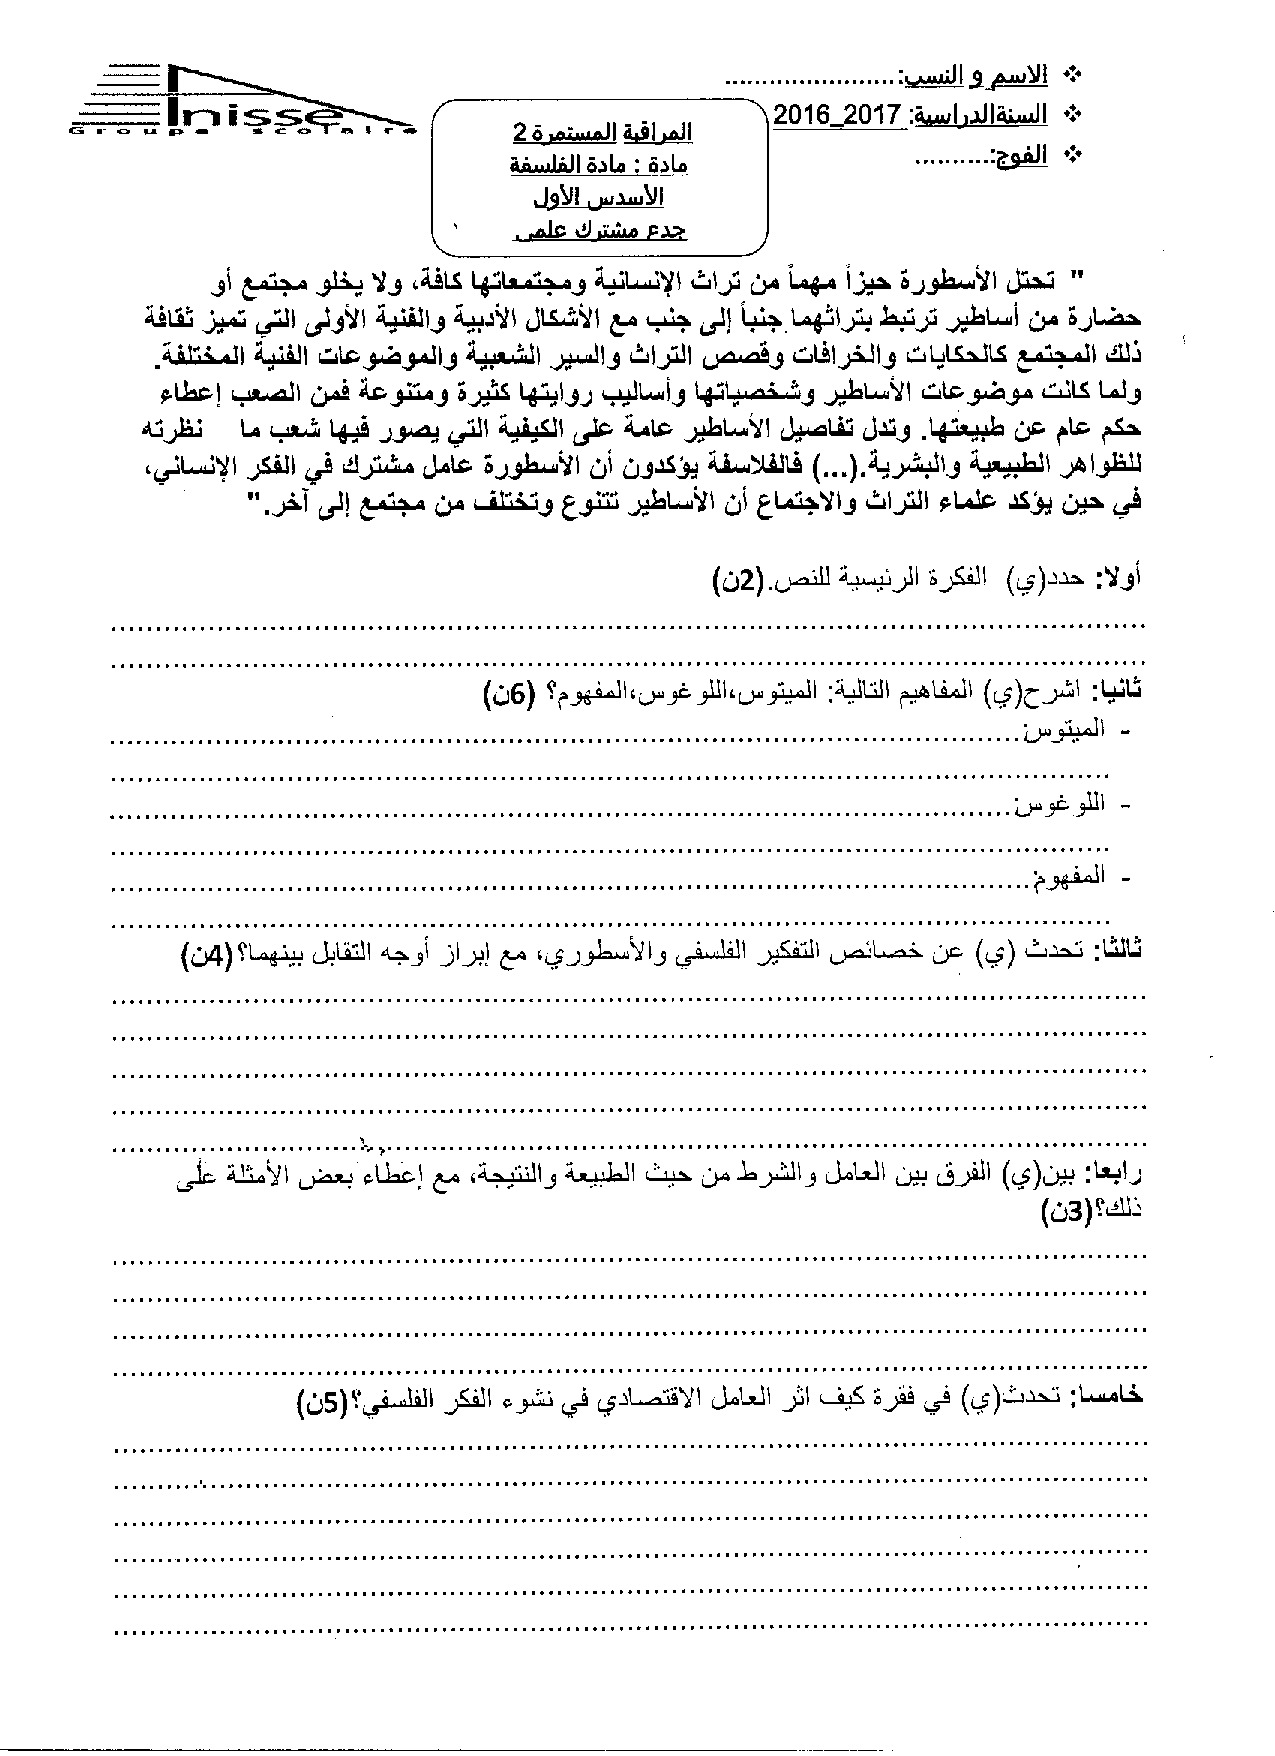 ❖ الاسم و النسب:.......................
Anisse
Groupe scolaire
❖ السنةالدراسية: 2017_2016
❖ الفوج:..........
المراقبة المستمرة 2
مادة : مادة الفلسفة
الأسدس الأول
جدع مشترك علمي
" تحتل الأسطورة حيزاً مهماً من تراث الإنسانية ومجتمعاتها كافة، ولا يخلو مجتمع أو
حضارة من أساطير ترتبط بتراثهما جنباً إلى جنب مع الأشكال الأدبية والفنية الأولى التي تميز ثقافة
ذلك المجتمع كالحكايات والخرافات وقصص التراث والسير الشعبية والموضوعات الفنية المختلفة.
ولما كانت موضوعات الأساطير وشخصياتها وأساليب روايتها كثيرة ومتنوعة فمن الصعب إعطاء
حكم عام عن طبيعتها. وتدل تفاصيل الأساطير عامة على الكيفية التي يصور فيها شعب ما نظرته
للظواهر الطبيعية والبشرية.(...) فالفلاسفة يؤكدون أن الأسطورة عامل مشترك في الفكر الإنساني،
في حين يؤكد علماء التراث والاجتماع أن الأساطير تتنوع وتختلف من مجتمع إلى آخر."
أولا: حدد(ي) الفكرة الرئيسية للنص.(2ن)
ثانيا: اشرح(ي) المفاهيم التالية: الميتوس،اللوغوس،المفهوم؟ (6ن)
- الميتوس:
- اللوغوس:
- المفهوم:
ثالثا: تحدث (ي) عن خصائص التفكير الفلسفي والأسطوري، مع إبراز أوجه التقابل بينهما؟(4ن)
رابعا: بين(ي) الفرق بين العامل والشرط من حيث الطبيعة والنتيجة، مع إعطاء بعض الأمثلة على
ذلك؟(3ن)
خامسا: تحدث(ي) في فقرة كيف اثر العامل الاقتصادي في نشوء الفكر الفلسفي؟(5ن)